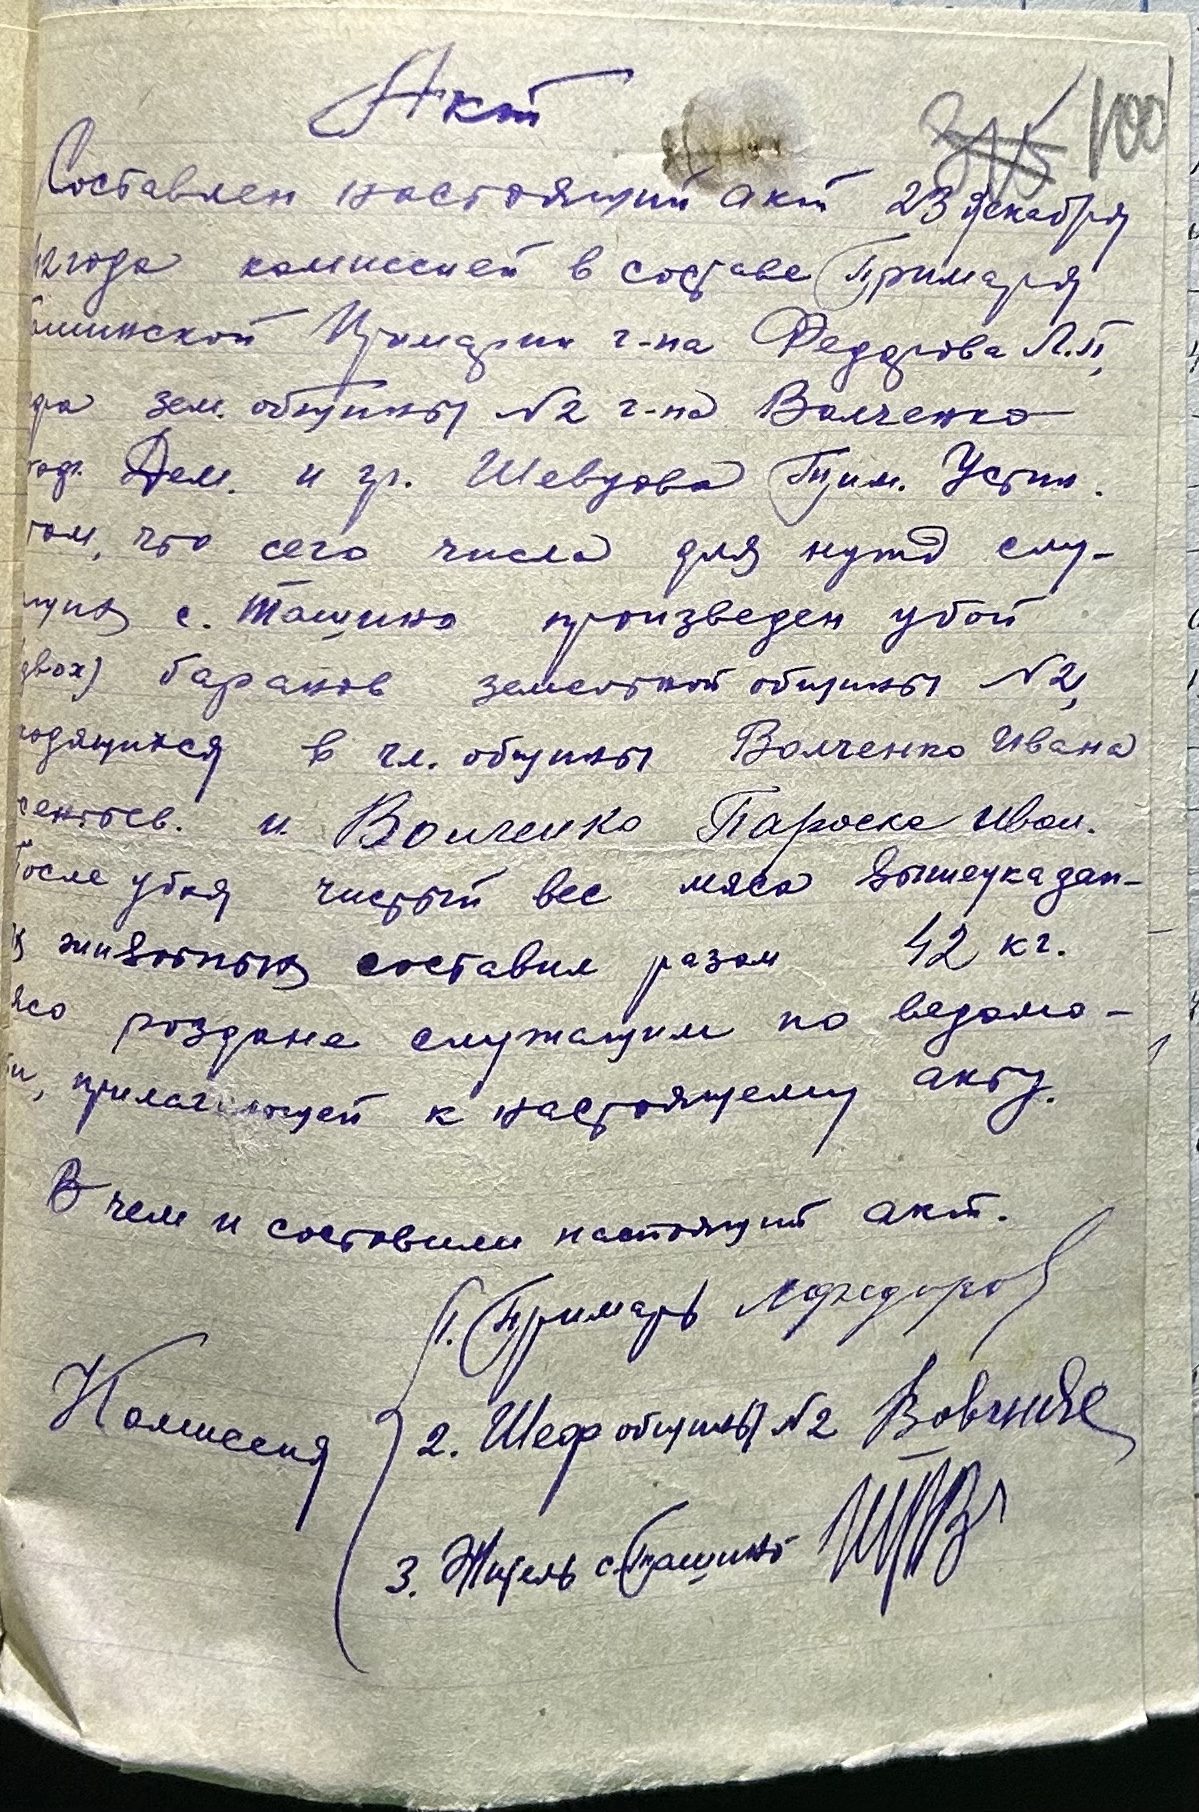 Акт
315 100
Составлен настоящий акт 23 декабря
42 года комиссией в составе Примаря
ашинской Примарии г-на Федорова Л.П,
зем. общины №2 г-на Волченко
Дем. и гр. Шевцова Тим. Устин.
том, что сего числа для нужд слу-
щих с. Ташино произведен убой
двох) баранов земельной общины №2,
ходящихся в чл. общины Волченко Ивана
сентьев. и Волченко Пароска Иван.
После убоя чистый вес мяса вышеуказан-
х животных составил разом 42 кг.
ясо роздане служащим по ведомо-
ти, прилагающей к настоящему акту.
В чем и составили настоящий акт.
1. Примарь ЛФедоров
Комиссия
2. Шеф общины №2
3. Житель с. Ташино